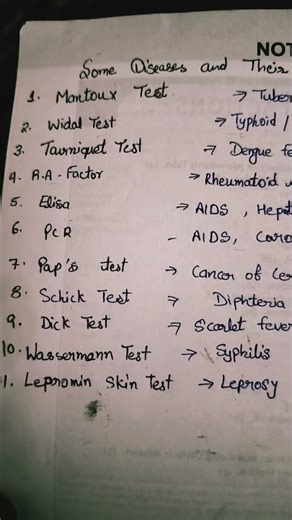 NOT
Some Diseases and Their
1. Mantoux Test → Tuber
2. Widal Test → Typhoid /
3. Tourniquet Test → Dengue fe
4. R.A - Factor → Rheumatoid
5. Elisa → AIDS , Hepat
6. PcR - AIDS, Coro
7. Pap's test → Cancar of Cer
8. Schick Test → Diphteria
9. Dick Test → Scarlet fever
10. Wassermann Test → Syphilis
1. Lepromin Skin Test → Leprosy